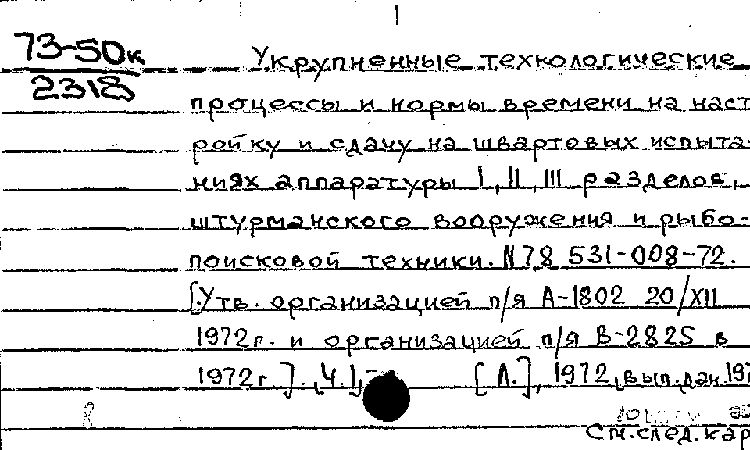 1
73-50к
2318
Укрупненные технологические
процессы и нормы времени на наст
ройку и сдачу на швартовых испыта-
ниях аппаратуры I, II, III разделов,
штурманского вооружения и рыбо-
поисковой техники. N78 531-008-72.
[Утв. организацией п/я А-1802 20/XII
1972г. и организацией п/я В-2825 в
1972г]. Ч.1, [Л.], 1972, вып.дан. 197
См.след.кар